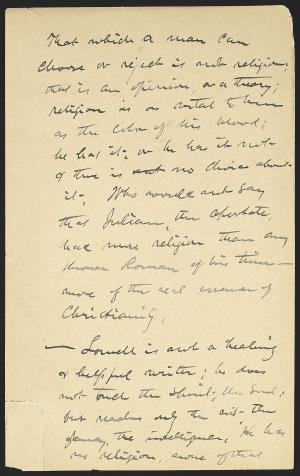 That which a man can
choose or reject is not religion;
that is an opinion, or a theory;
religion is as vital to him
as the color of his blood;
he has it, or he has it not
& there is no choice about
it. Who would not say
that Julian, the apostate,
had more religion than any
known Roman of his time —
more of the real essence of
Christianity.
— Lowell is not a healing
or helpful writer; he does
not touch the Spirit, the Soul;
but reaches only the
fancy, the intelligence. He has
no religion, none of that